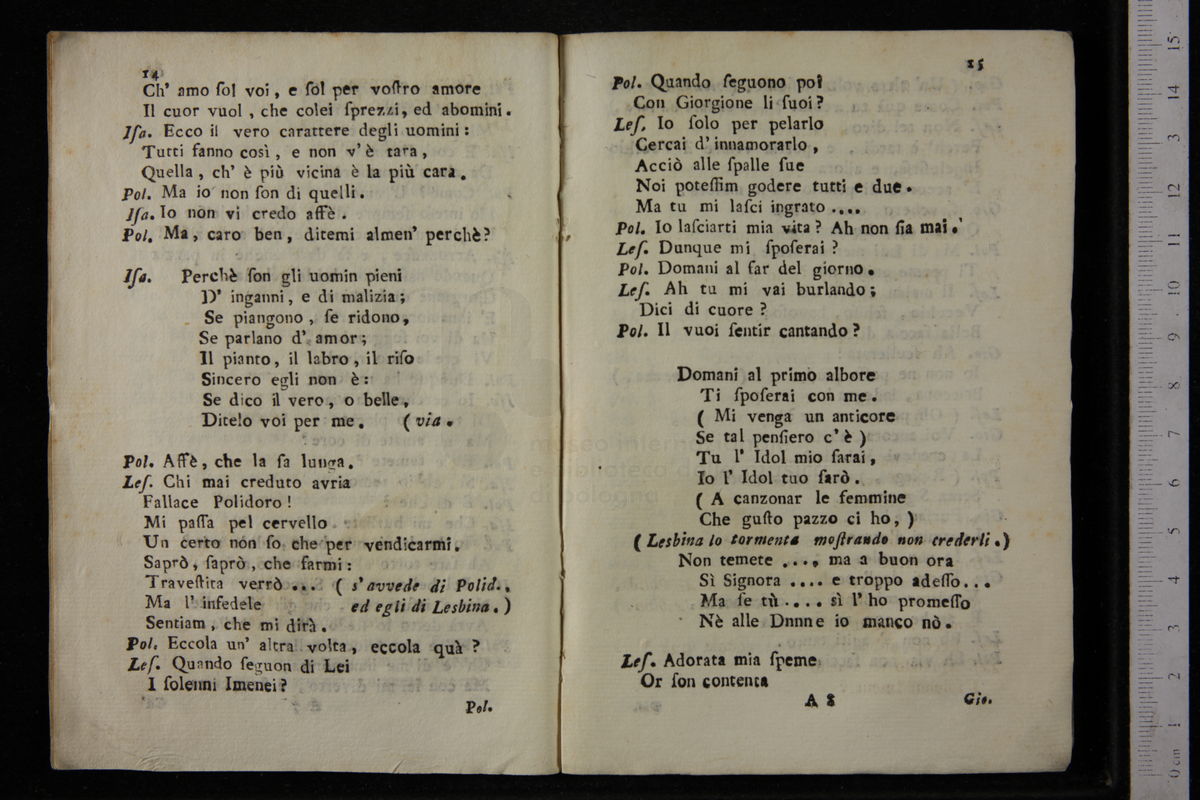 14
Ch' amo ſol voi, e ſol per voſtro amore
Il cuor vuol, che colei ſprezzi, ed abomini.
Iſa. Ecco il vero carattere degli uomini:
Tutti fanno così, e non v'è tara,
Quella, ch' è più vicina è la più cara.
Pol. Ma io non ſon di quelli.
Iſa. Io non vi credo affè.
Pol. Ma, caro ben, ditemi almen' perchè?
Iſa. Perchè ſon gli uomin pieni
D' inganni, e di malizia;
Se piangono, ſe ridono,
Se parlano d' amor;
Il pianto, il labro, il riſo
Sincero egli non è:
Se dico il vero, o belle,
Ditelo voi per me. (via.
Pol. Affè, che la fa lunga.
Leſ. Chi mai creduto avria
Fallace Polidoro!
Mi paſſa pel cervello
Un certo non ſo che per vendicarmi.
Saprò, ſaprò, che farmi:
Traveſtita verrò ... ( s'avvede di Polid.,
Ma l' infedele ed egli di Lesbina.)
Sentiam, che mi dirà.
Pol. Eccola un' altra volta, eccola quà?
Leſ. Quando ſeguon di Lei
I ſolenni Imenei?
Pol.
15
Pol. Quando ſeguono poi
Con Giorgione li ſuoi?
Leſ. Io ſolo per pelarlo
Cercai d' innamorarlo,
Acciò alle ſpalle ſue
Noi poteſſim godere tutti e due.
Ma tu mi laſci ingrato ....
Pol. Io laſciarti mia vita? Ah non ſia mai.
Leſ. Dunque mi ſpoſerai?
Pol. Domani al far del giorno.
Leſ. Ah tu mi vai burlando;
Dici di cuore?
Pol. Il vuoi ſentir cantando?
Domani al primo albore
Ti ſpoſerai con me.
( Mi venga un anticore
Se tal penſiero c'è )
Tu l' Idol mio ſarai,
Io l' Idol tuo ſarò.
( A canzonar le femmine
Che guſto pazzo ci ho, )
( Lesbina lo tormenta moſtrando non crederli.)
Non temete ...., ma a buon ora
Sì Signora .... e troppo adeſſo...
Ma ſe tù .... sì l' ho promeſſo
Nè alle Dnnne io manco nò.
Leſ. Adorata mia ſpeme
Or ſon contenta
A 8 Gio.